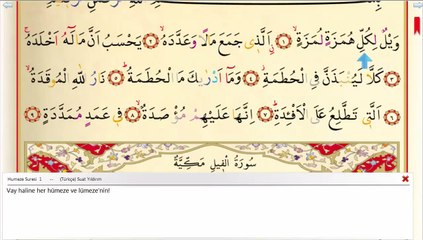 وَيْلٌ لِكُلِّ هُمَزَةٍ لُمَزَةٍۙ ١ اَلَّذٖي جَمَعَ مَالًا وَعَدَّدَهُۙ ٢ يَحْسَبُ اَنَّ مَالَهُٓ اَخْلَدَهُۚ
٣ كَلَّا لَيُنْبَذَنَّ فِي الْحُطَمَةِۘ ٤ وَمَٓا اَدْرٰيكَ مَا الْحُطَمَةُۜ ٥ نَارُ اللّٰهِ الْمُوقَدَةُۙ
٦ اَلَّتٖي تَطَّلِعُ عَلَى الْاَفْـِٔدَةِۜ ٧ اِنَّهَا عَلَيْهِمْ مُؤْصَدَةٌۙ ٨ فٖي عَمَدٍ مُمَدَّدَةٍ ٩
سُورَةُ الْفٖيلِ مَكِّيَّةٌ
Humeze Suresi 1 -- (Türkçe) Suat Yıldırım
Vay haline her hümeze ve lümeze'nin!